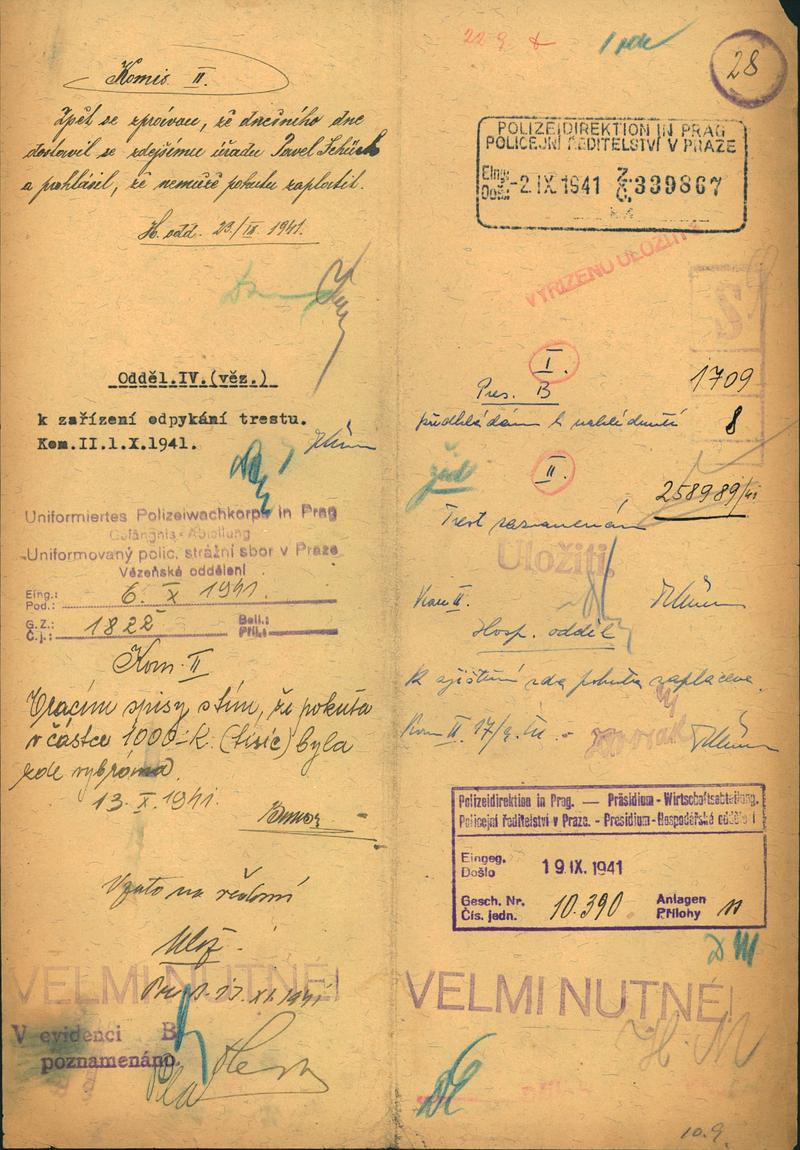 Komis. II.
Zpět se zprávou, že dnešního dne
dostavil se zdejšímu úřadu Pavel
a prohlásil, že nemůže pokutu zaplatit.
H. odd. 23./IX. 1941.
Odděl.IV.(věz.)
k zařízení odpykání trestu.
Kom.II.1.X.1941.
Uniformiertes Polizeiwachkorps in Prag
Gefängnis-Abteilung
Uniformovaný polic. strážní sbor v Praze
Vězeňské oddělení
Eing.:
Pod.: 6. X 1941.
G.Z.:
Č.j.: 1822
Beil.:
Příl.:
Kom. II
Vracím spisy s tím, že pokuta
v částce 1000.-K. (tisíc) byla
zde vybrána.
13. X. 1941.
Vzato na vědomí
Ulož.
VELMI NUTNÉ!
V evidenci B
poznamenáno.
22 9.
28
POLIZEIDIREKTION IN PRAG
POLICEJNÍ ŘEDITELSTVÍ V PRAZE
Eing.
Došl. -2. IX. 1941 339867
VYŘÍZENO ULOŽITI
I.
Pres. B 1709
předkládám k nahlédnutí 8
žid
II.
258989/41
Trest zaznamenán
Uložiti.
Kom II.
Hosp. odděl
k zjištění zda pokuta zaplacena.
Kom II. 17/9.
Polizeidirektion in Prag. — Präsidium - Wirtschaftsabteilung.
Policejní ředitelství v Praze. - Presidium - Hospodářské oddělení
Eingeg.
Došlo 19. IX. 1941
Gesch. Nr.
Čís. jedn. 10.390
Anlagen
Přílohy
VELMI NUTNÉ!
10.9.